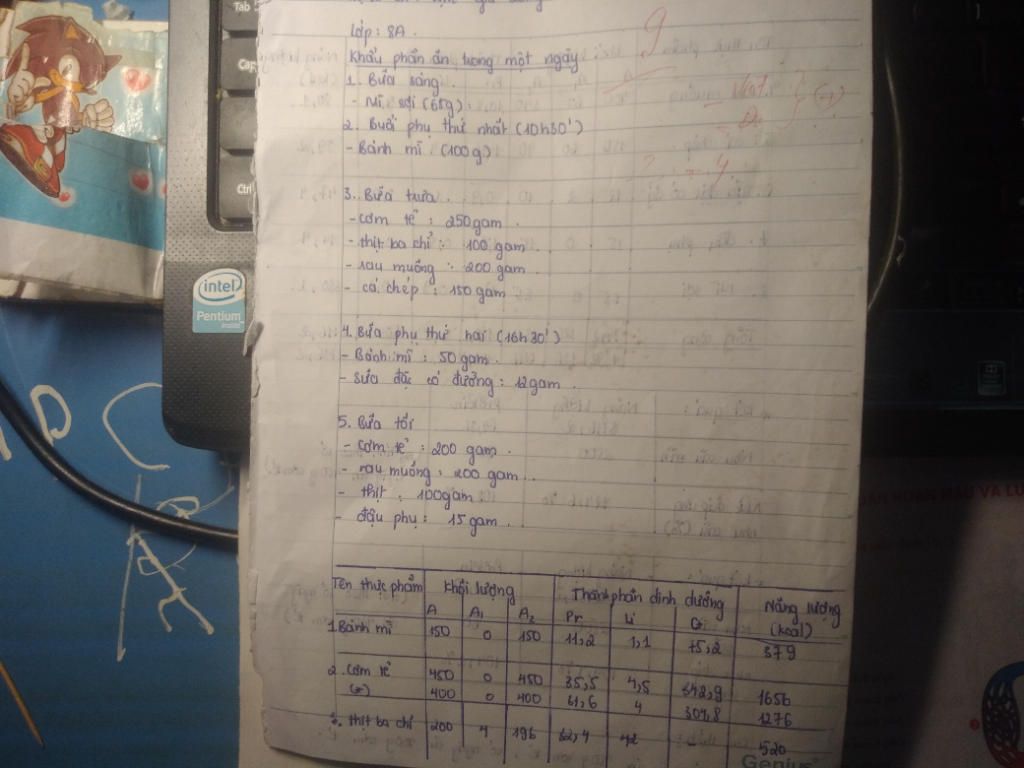 Lớp: 8A
9
Khẩu phần ăn trong một ngày
1. Bữa sáng.
- Mì sợi (65g)
2. Buổi phụ thứ nhất (10h30')
- Bánh mì (100g)
3. Bữa trưa.
- cơm tẻ : 250gam
- thịt ba chỉ : 100 gam
- rau muống : 200 gam
- cá chép : 150 gam
4. Bữa phụ thứ hai (16h30')
- Bánh mì : 50 gam
- sữa đặc có đường : 12gam.
5. Bữa tối
- cơm tẻ : 200 gam.
- rau muống : 200 gam
- thịt : 100gam
- đậu phụ : 15 gam.
Tên thực phẩm Khối lượng Thành phần dinh dưỡng Năng lượng
A A1 A2 Pr Li G (kcal)
1. Bánh mì 150 0 150 11,2 1,1 75,2 379
2. Cơm tẻ 450 0 450 35,5 4,5 342,9 1656
(*) 400 0 400 31,6 4 304,8 1276
3. thịt ba chỉ 200 4 196 32,4 42 - 520
Tab
Cap
Ctrl
intel
Pentium
inside
Genius